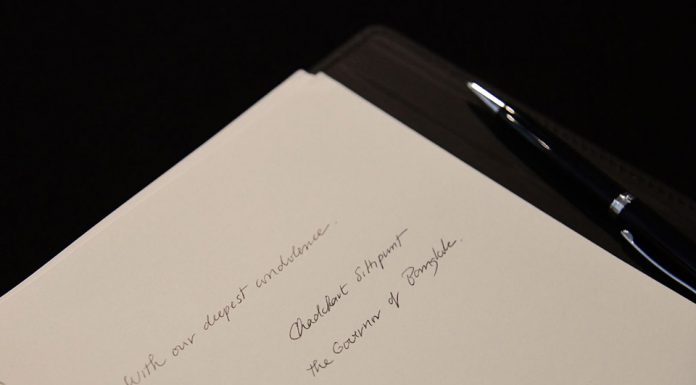 With our deepest condolence.
Chadchart Sittipunt
the Governor of Bangkok.